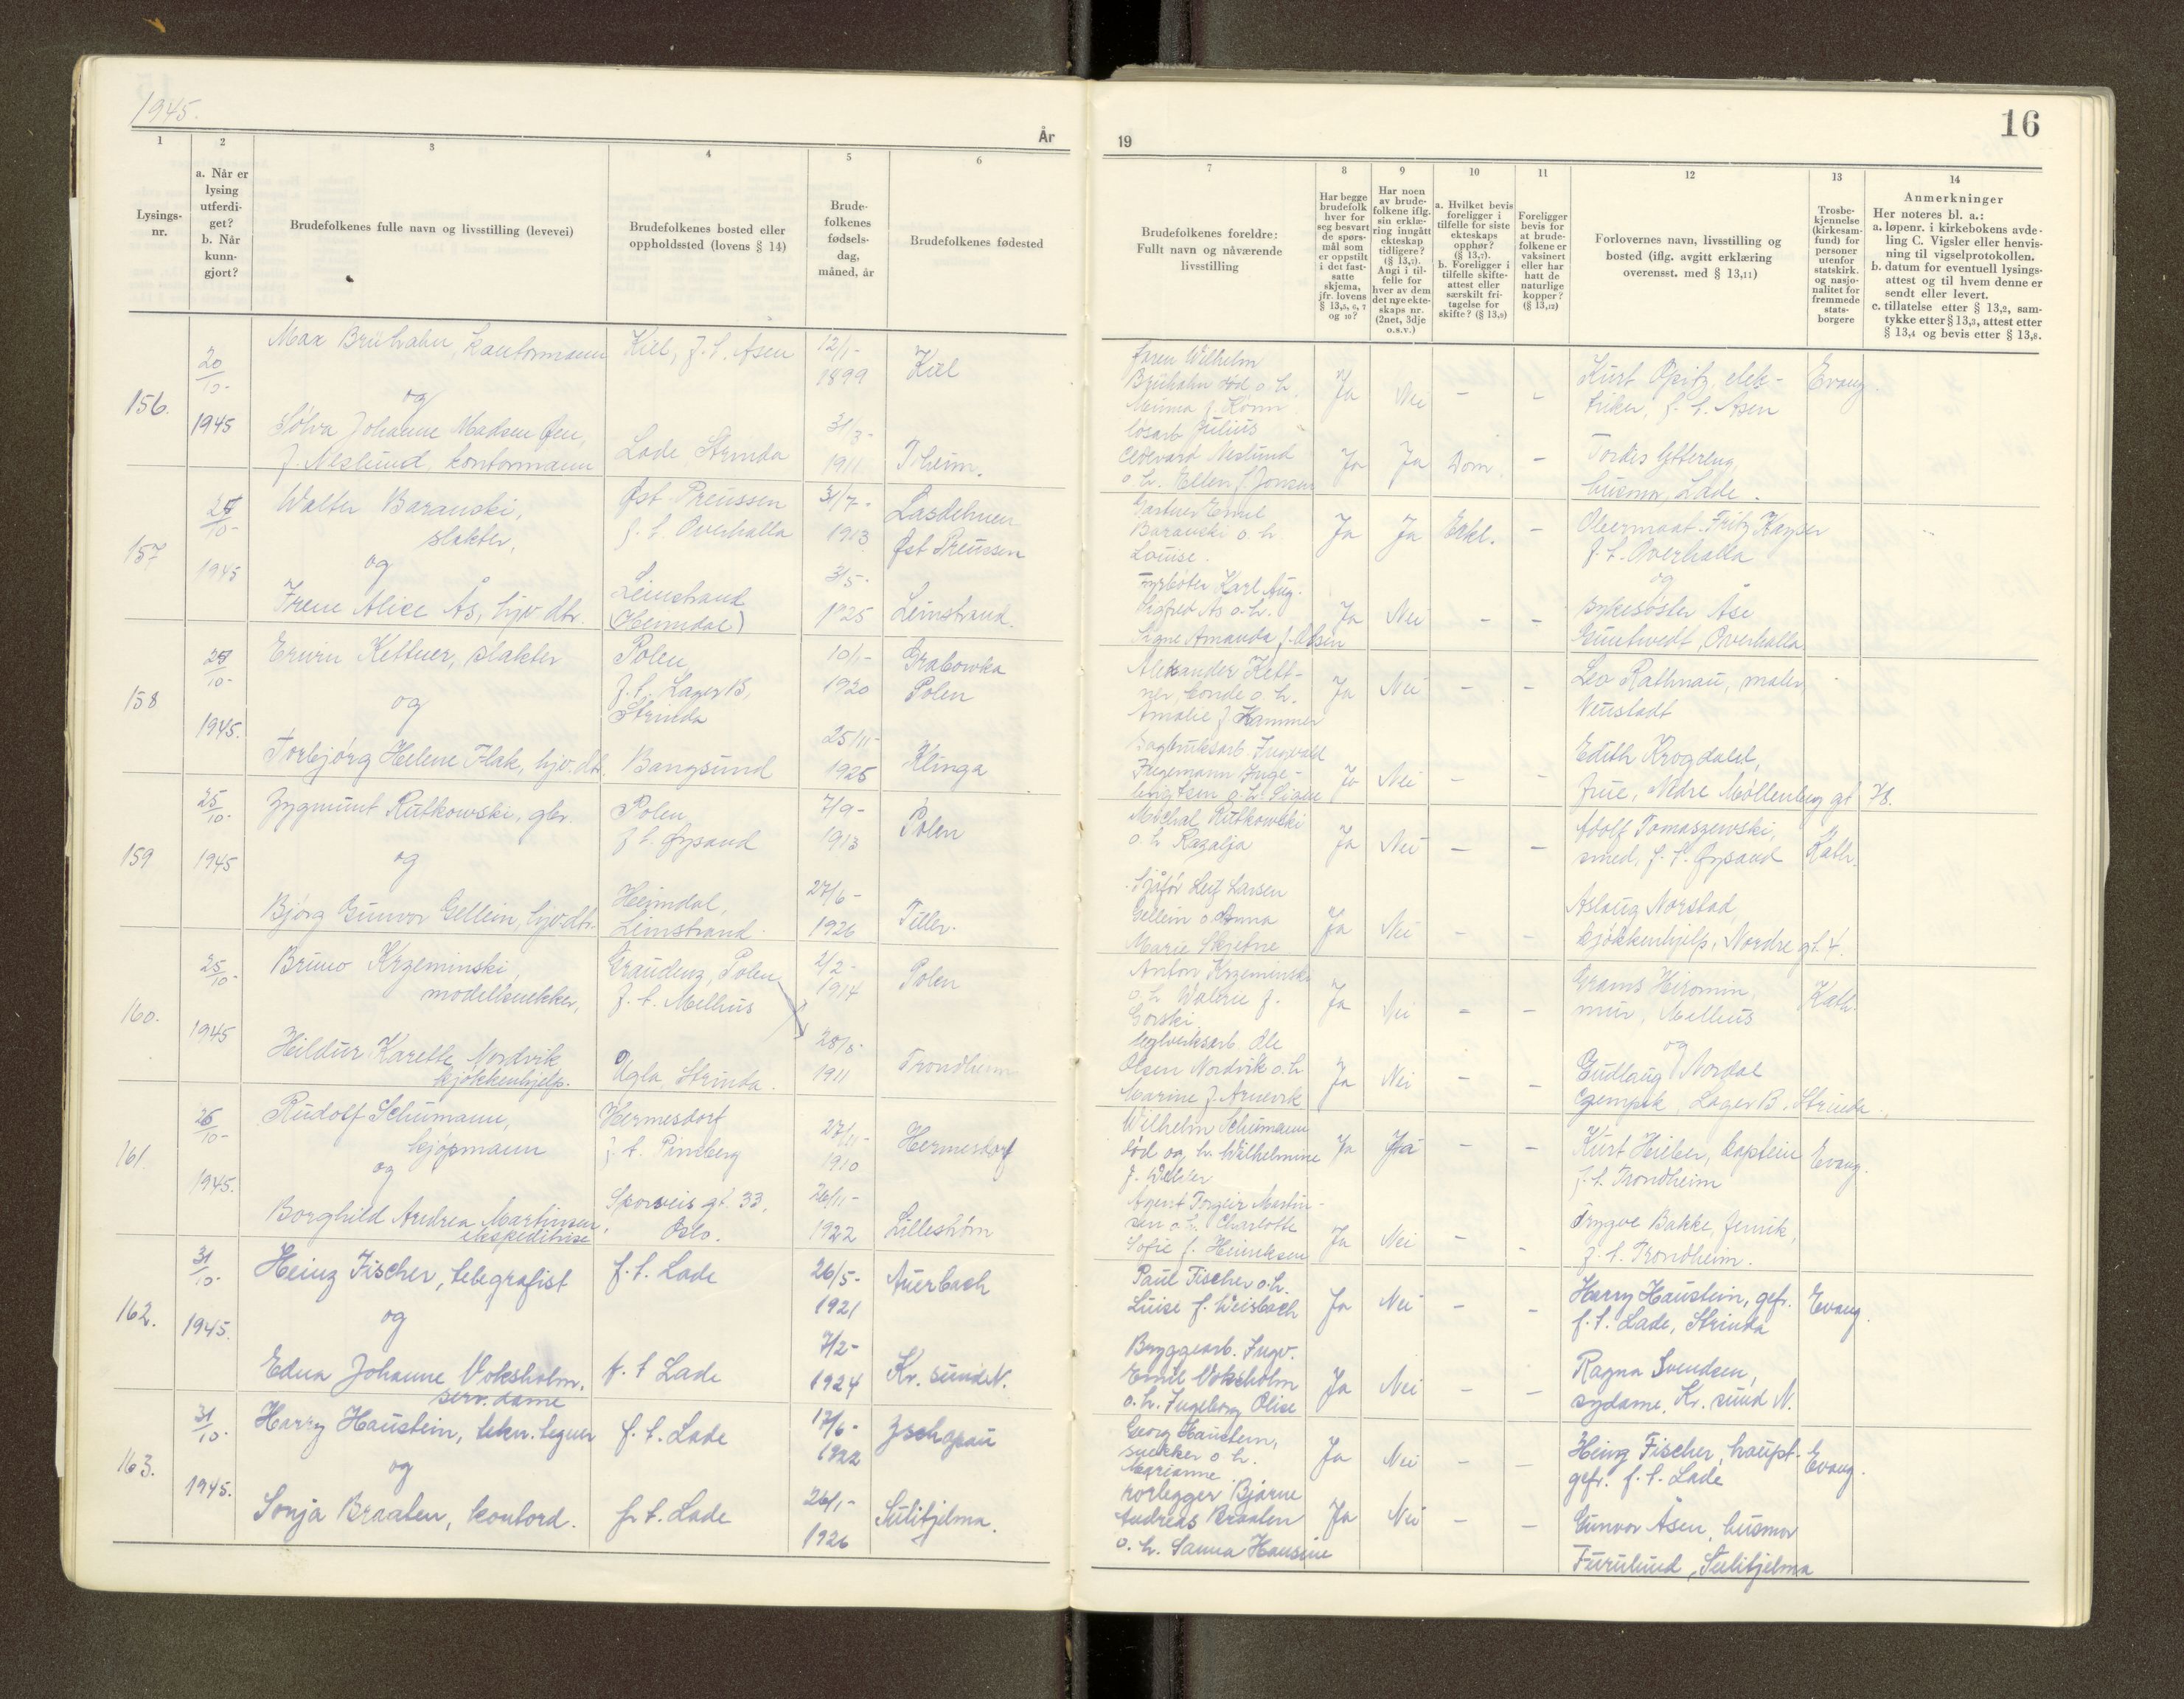 1945.
År
1
2
3
4
5
6
Lysings-
nr.
a. Når er
lysing
utferdi-
get?
b. Når
kunn-
gjort?
Brudefolkenes fulle navn og livsstilling (levevei)
Brudefolkenes bosted eller
oppholdssted (lovens § 14)
Brude-
folkenes
fødsels-
dag,
måned, år
Brudefolkenes fødested
156.
20/10-
1945
Max Brühahn, kontormann
Kiel, f. t. Åsen
12/1-
1899
Kiel
og
Sólva Johanne Madsen Øen,
f. Neslund, kontormann
Lade, Strinda
31/3-
1911
Tr.heim.
157
25/10-
1945
Walter Baranski,
slakter,
Øst Preussen
f. t. Overhalla
31/7-
1913
Lasdehnen
Øst Preussen
og
Irene Alice Ås, hjv. dtr.
Leinstrand
(Heimdal)
3/5-
1925
Leinstrand.
158
25/10-
1945.
Erwin Kettner, slakter
Polen,
f. t. Lager B,
Strinda
10/1-
1920
Grabowka
Polen
og
Torbjørg Helene Flak, hjv. dtr.
Bangsund
25/11-
1925
Klinga
159
25/10-
1945
Zygmunt Rutkowski, gbr.
Polen
f. t. Øysand
7/9-
1913
Polen
og
Bjørg Gunvor Gellein, hjv. dtr.
Heimdal,
Leinstrand.
27/6-
1926
Tiller.
160.
25/10-
1945
Bruno Krzeminski,
modellsnekker,
Graudenz, Polen
f. t. Melhus
2/2-
1914
Polen
Hildur Karette Nordvik
kjøkkenhjelp.
Ugla, Strinda.
28/5-
1911
Trondheim
161.
26/10-
1945.
Rudolf Schumann,
kjøpmann
Hermesdorf
f. t. Pinsberg
27/11-
1910
Hermesdorf
og
Borghild Andrea Martinsen,
ekspeditrise
Sporveis gt. 33,
Oslo.
26/11-
1922
Lillestrøm
162.
31/10-
1945.
Heinz Fischer, telegrafist
f. t. Lade
26/5-
1921
Auerbach
og
Edna Johanne Voksholm,
serv. dame
f. t. Lade
7/2-
1924
Kr. sund N.
163.
31/10-
1945.
Harry Haustein, tekn. tegner
f. t. Lade
17/6-
1922
Zschopau
og
Sonja Braaten, kontord.
f. t. Lade
26/1-
1926
Sulitjelma.
16
19
7
8
9
10
11
12
13
14
Brudefolkenes foreldre:
Fullt navn og nåværende
livsstilling
Har begge
brudefolk
hver for
seg besvart
de spørs-
mål som
er oppstilt
i det fast-
satte
skjema,
jfr. lovens
§ 13,5, 6, 7
og 10?
Har noen
av brude-
folkene iflg.
sin erklæ-
ring inngått
ekteskap
tidligere?
(§ 13,7).
Angi i til-
felle for
hver av dem
det nye ekte-
skaps nr.
(2net, 3dje
o.s.v.)
a. Hvilket bevis
foreligger i
tilfelle for siste
ekteskaps
opphør?
(§ 13,7).
b. Foreligger i
tilfelle skifte-
attest eller
særskilt fri-
tagelse for
skifte? (§ 13,9)
Foreligger
bevis for
at brude-
folkene er
vaksinert
eller har
hatt de
naturlige
kopper?
(§ 13,12)
Forlovernes navn, livsstilling og
bosted (iflg. avgitt erklæring
overensst. med § 13,11)
Trosbe-
kjennelse
(kirkesam-
fund) for
personer
utenfor
statskirk.
og nasjo-
nalitet for
fremmede
stats-
borgere
Anmerkninger
Her noteres bl. a.:
a. løpenr. i kirkebokens avde-
ling C. Vigsler eller henvis-
ning til vigselprotokollen.
b. datum for eventuell lysings-
attest og til hvem denne er
sendt eller levert.
c. tillatelse etter § 13,2, sam-
tykke etter § 13,3, attest etter
§ 13,4 og bevis etter § 13,8.
Wilhelm
Brühahn død o. h.
Minna f.
Ja
Nei
-
-
Kurt Opitz, elek-
triker, f. t. Åsen
Evang.
løsarb. Julius
Edevard Neslund
o. h. Ellen f. Jonsen
Ja
Ja
Dom.
-
Tordis Yttereng,
husmor, Lade.
Gartner Emil
Baranski o. h.
Louise.
Ja
Ja
Erkl.
-
Obermaat Fritz Kayser
f. t. Overhalla
og
Fyrbøter Karl Aug.
Sigfred Ås o. h.
Signe Amanda f. Olsen
Ja
Nei
-
-
sykesøster Åse
Guntvedt, Overhalla
Alexander Kett-
ner, bonde o. h.
Amalie f. Kammer
Ja
Nei
-
-
Leo Rathnau, maler,
Neustadt
Sagbruksarb. Ingvald
Ingemann Inge-
brigtsen o. h. Signe
Ja
Nei
-
-
Edith Krogdahl,
frue, Nedre Møllenberg gt. 78.
Michal Rutkowski
o. h. Rozalja
Ja
Nei
-
-
Adolf Tomaszewski,
smed, f. t. Øysand
Kath.
Sjåfør Leif Larsen
Gellein o. Anna
Marie Skjetne
Ja
Nei
-
-
Aslaug Norstad,
kjøkkenhjelp, Nordre gt. 4.
Anton Krzeminski
o. h. Walerie f.
Gorski
Ja
Nei
-
-
Grams Hiromin,
mur, Melhus
Kath.
og
teglverksarb. Ole
Olsen Nordvik o. h.
Marine f. Arnevik
Ja
Nei
-
-
Gudlaug Nordal
Lager B. Strinda.
Wilhelm Schumann
død og h. Wilhelmine
f. Weller
Ja
Ja
-
-
Kurt Hieber, kaptein
f. t. Trondheim
Evang.
Agent Torgeir Martin-
sen o. h. Charlotte
Sofie f. Henriksen
Ja
Nei
-
-
Trygve Bakke, fenrik,
f. t. Trondheim.
Paul Fischer o. h.
Luise f. Weisbach
Ja
Nei
-
-
Harry Haustein, gefr.
f. t. Lade, Strinda
Evang.
Bryggearb. Ingv.
Emil Voksholm
o. h. Ingeborg Olise
Ja
Nei
-
-
Ragna Svendsen,
sydame, Kr. sund N.
Georg Haustein,
snekker o. h.
Marianne
Ja
Nei
-
-
Heinz Fischer, haupt-
gefr. f. t. Lade
Evang.
rørlegger Bjarne
Andreas Braaten
o. h. Sanna Hansine
Ja
Nei
-
-
Gunvor Åsen, husmor
Furulund, Sulitjelma